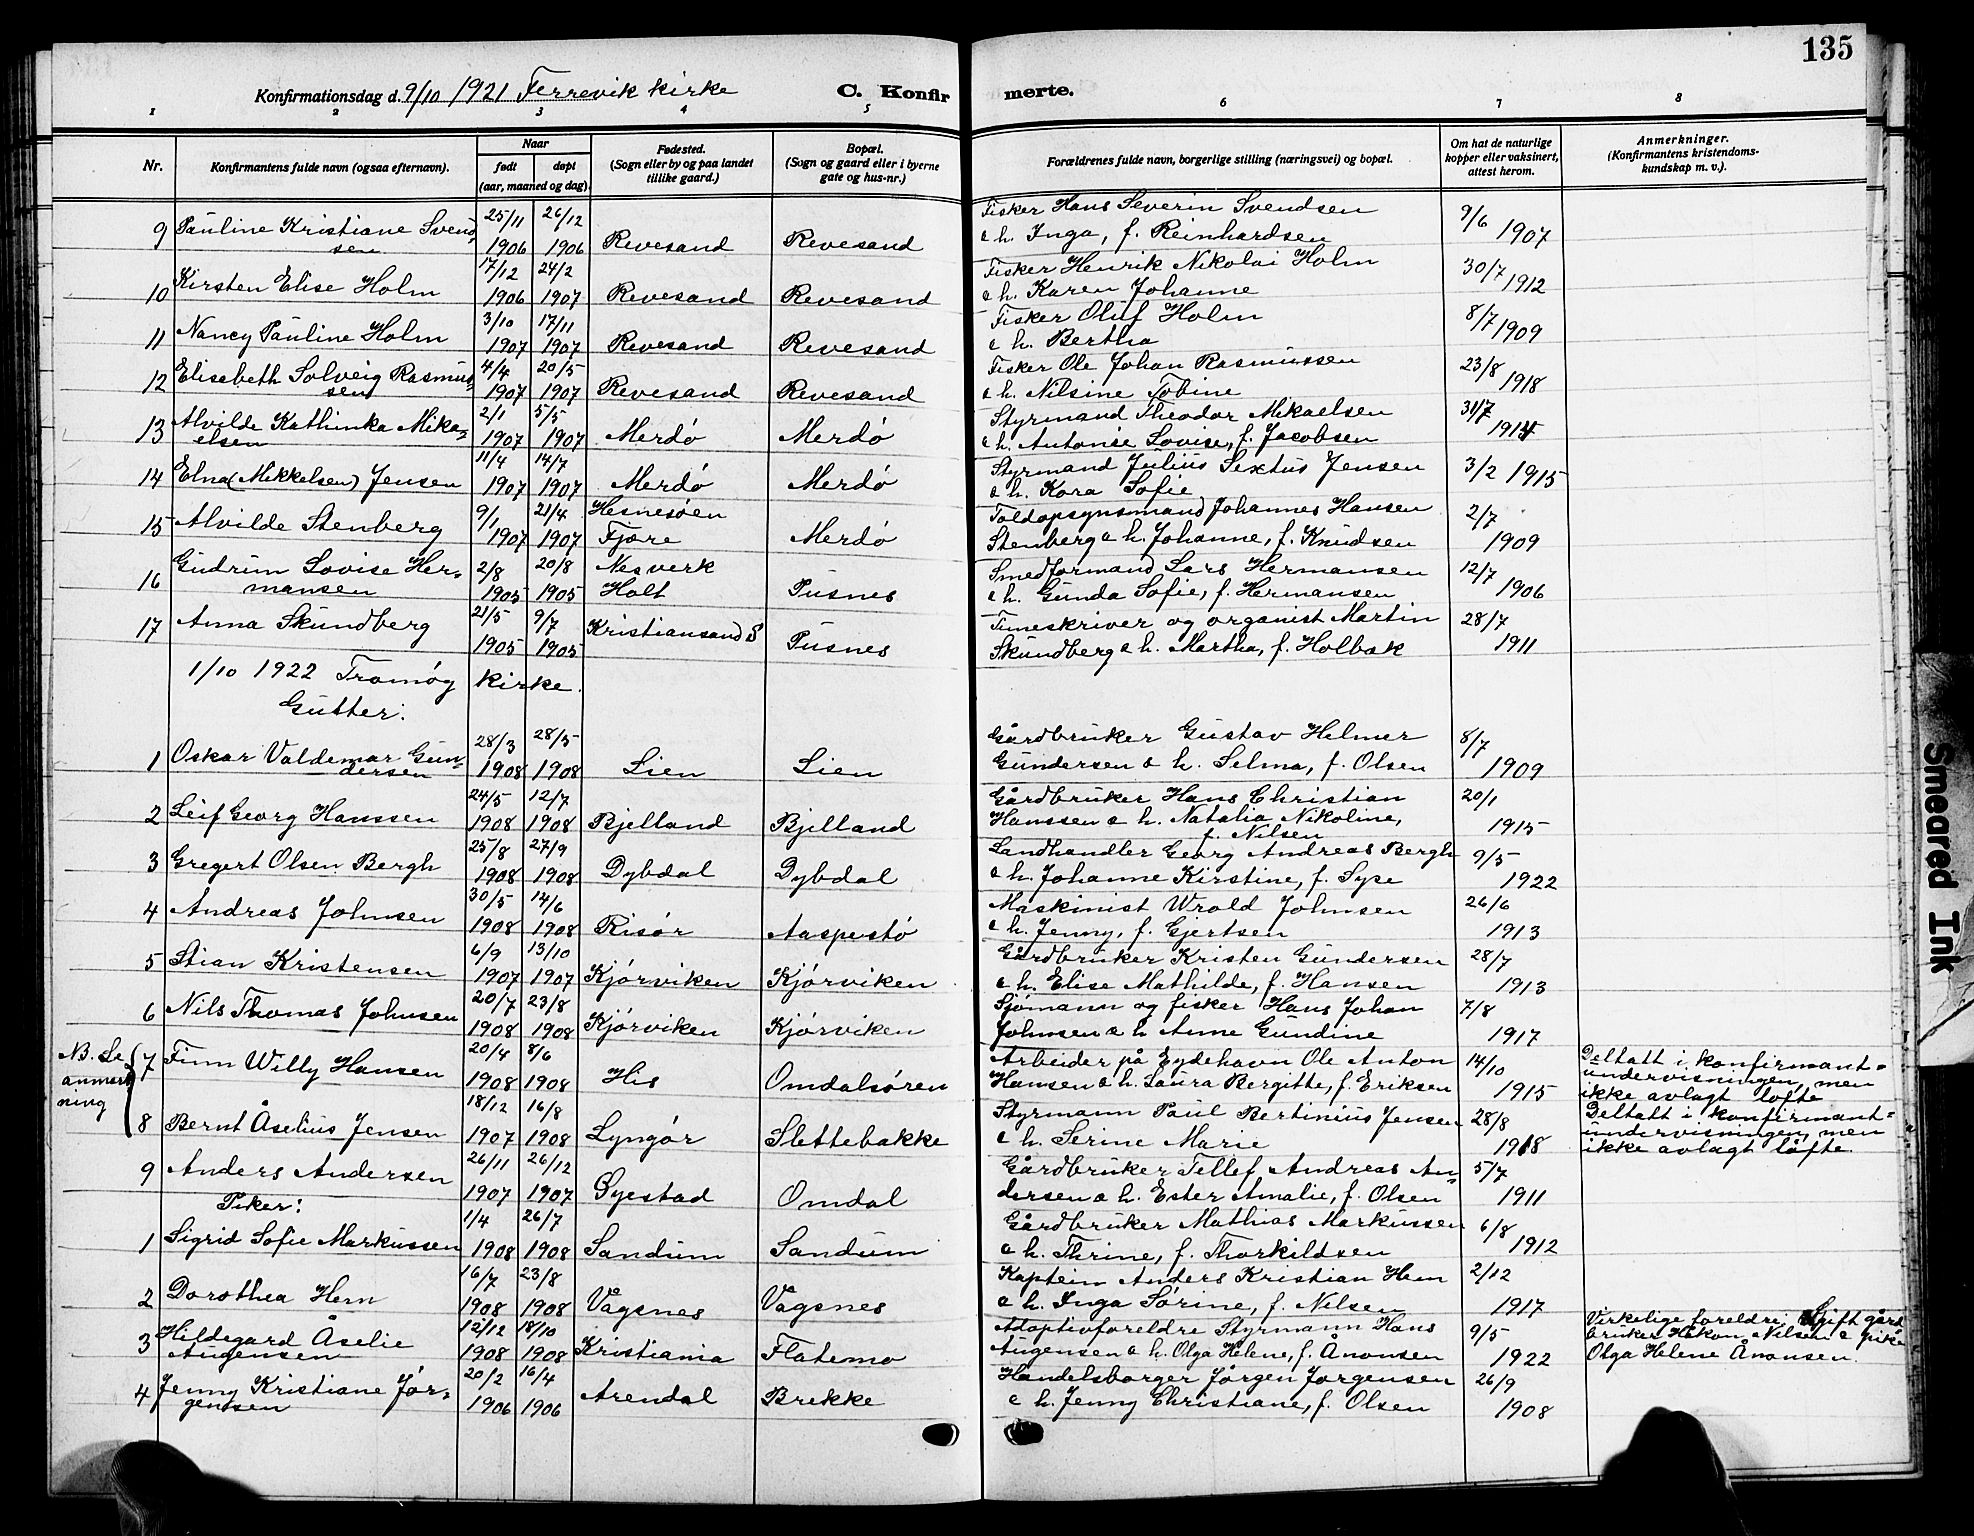 135
Konfirmationsdag d. 9/10 1921 Færevik kirke C. Konfirmerte.
1 2 3 4 5 6 7 8
Nr. Konfirmantens fulde navn (ogsaa efternavn). Naar født døpt (aar, maaned og dag). Fødested. (Sogn eller by og paa landet tillike gaard.) Bopæl. (Sogn og gaard eller i byerne gate og hus-nr.) Forældrenes fulde navn, borgerlige stilling (næringsvei) og bopæl. Om hat de naturlige kopper eller vaksinert, attest herom. Anmerkninger. (Konfirmantens kristendoms-kundskap m. v.).
9 Pauline Kristiane Svendsen 25/11 1906 26/12 1906 Revesand Revesand Fisker Hans Severin Svendsen & h. Inga, f. Reinhardsen 9/6 1907
10 Kirsten Elise Holm 17/12 1906 24/2 1907 Revesand Revesand Fisker Henrik Nikolai Holm & h. Karen Johanne 30/7 1912
11 Nancy Pauline Holm 3/10 1907 17/11 1907 Revesand Revesand Fisker Oluf Holm & h. Bertha 8/7 1909
12 Elisabeth Solveig Rasmussen 4/4 1907 20/5 1907 Revesand Revesand Fisker Ole Johan Rasmussen & h. Nilsine Tobine 23/8 1918
13 Alvilde Kathinka Mikaelsen 2/1 1907 5/5 1907 Merdø Merdø Styrmand Theodor Mikaelsen & h. Antonie Lovise, f. Jacobsen 31/7 1914
14 Elna (Mikkelsen) Jensen 11/4 1907 14/7 1907 Merdø Merdø Styrmand Julius Sextus Jensen & h. Kora Sofie 3/2 1915
15 Alvilde Stenberg 9/1 1907 21/4 1907 Hesnesøen Fjære Merdø Toldopsynsmand Johannes Hansen Stenberg & h. Johanne, f. Knudsen 2/7 1909
16 Gudrun Lovise Hermansen 2/8 1905 20/8 1905 Nesverk Holt Pusnes Smedformand Lars Hermansen & h. Gunda Sofie, f. Hermansen 12/7 1906
17 Anna Skundberg 21/5 1905 9/7 1905 Kristiansand S Pusnes Timeskriver og organist Martin Skundberg & h. Martha, f. Holbæk 28/7 1911
1/10 1922 Tromøy kirke.
Gutter:
1 Oskar Valdemar Gundersen 28/3 1908 28/5 1908 Lien Lien Gårdbruker Gustav Helmer Gundersen & h. Selma, f. Olsen 8/7 1909
2 Leif Georg Hanssen 24/5 1908 12/7 1908 Bjelland Bjelland Gårdbruker Hans Christian Hanssen & h. Natalia Nikoline, f. Nilsen 20/1 1915
3 Gregert Olsen Bergh 25/8 1908 27/9 1908 Dybdal Dybdal Landhandler Georg Andreas Bergh & h. Johanne Kirstine, f. Syse 9/5 1922
4 Andreas Johnsen 30/5 1908 14/6 1908 Risør Aaspestø Maskinist Wrold Johnsen & h. Jenny, f. Gjertsen 26/6 1913
5 Stian Kristensen 6/9 1907 13/10 1907 Kjørviken Kjørviken Gårdbruker Kristen Gundersen & h. Elise Mathilde, f. Hansen 28/7 1913
6 Nils Thomas Johnsen 20/7 1908 23/8 1908 Kjørviken Kjørviken Sjømann og fisker Hans Johan Johnsen & h Anne Gundine 7/8 1917
NB. Se anmerkning
7 Finn Willy Hansen 20/4 1908 8/6 1908 His Omdalsøren Arbeider på Eydehavn Ole Anton Hansen & h. Laura Bergitte, f. Eriksen 14/10 1915 Deltatt i konfirmantundervisningen, men ikke avlagt løfte
8 Bernt Åselius Jensen 18/12 1907 16/8 1908 Lyngør Slettebakke Styrmann Paul Bertinius Jensen & h. Serine Marie 28/8 1918 Deltatt i konfirmantundervisningen, men ikke avlagt løfte.
9 Anders Andersen 26/11 1907 26/12 1907 Øyestad Omdal Gårdbruker Tellef Andreas Andersen & h. Ester Amalie, f. Olsen 5/7 1911
Piker:
1 Sigrid Sofie Markussen 1/4 1908 26/7 1908 Sandum Sandum Gårdbruker Mathias Markussen & h. Thrine, f. Thorkildsen 6/8 1912
2 Dorothea Hem 16/7 1908 23/8 1908 Vågsnes Vågsnes Kaptein Anders Kristian Hem & h. Inga Sørine, f. Nilsen 2/12 1917
3 Hildegard Åselie Augensen 12/12 1908 18/10 1908 Kristiania Flatemo Adoptivforeldre Styrmann Hans Augensen & h. Olga Helene, f. Ånonsen 9/5 1922 Virkelige foreldre: Ugift gårdbruker Håkon Nilsen & pike Olga Helene Ånonsen.
4 Jenny Kristiane Jørgensen 20/2 1906 16/4 1906 Arendal Brekke Handelsborger Jørgen Jørgensen & h. Jenny Christiane, f. Olsen 26/9 1908
Smeared Ink